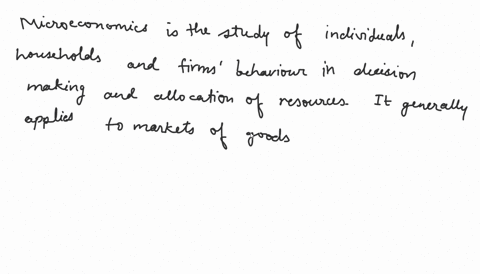 Microeconomics is the study of individuals,
households and firms' behaviour in decision
making and allocation of resources. It generally
applies to markets of goods